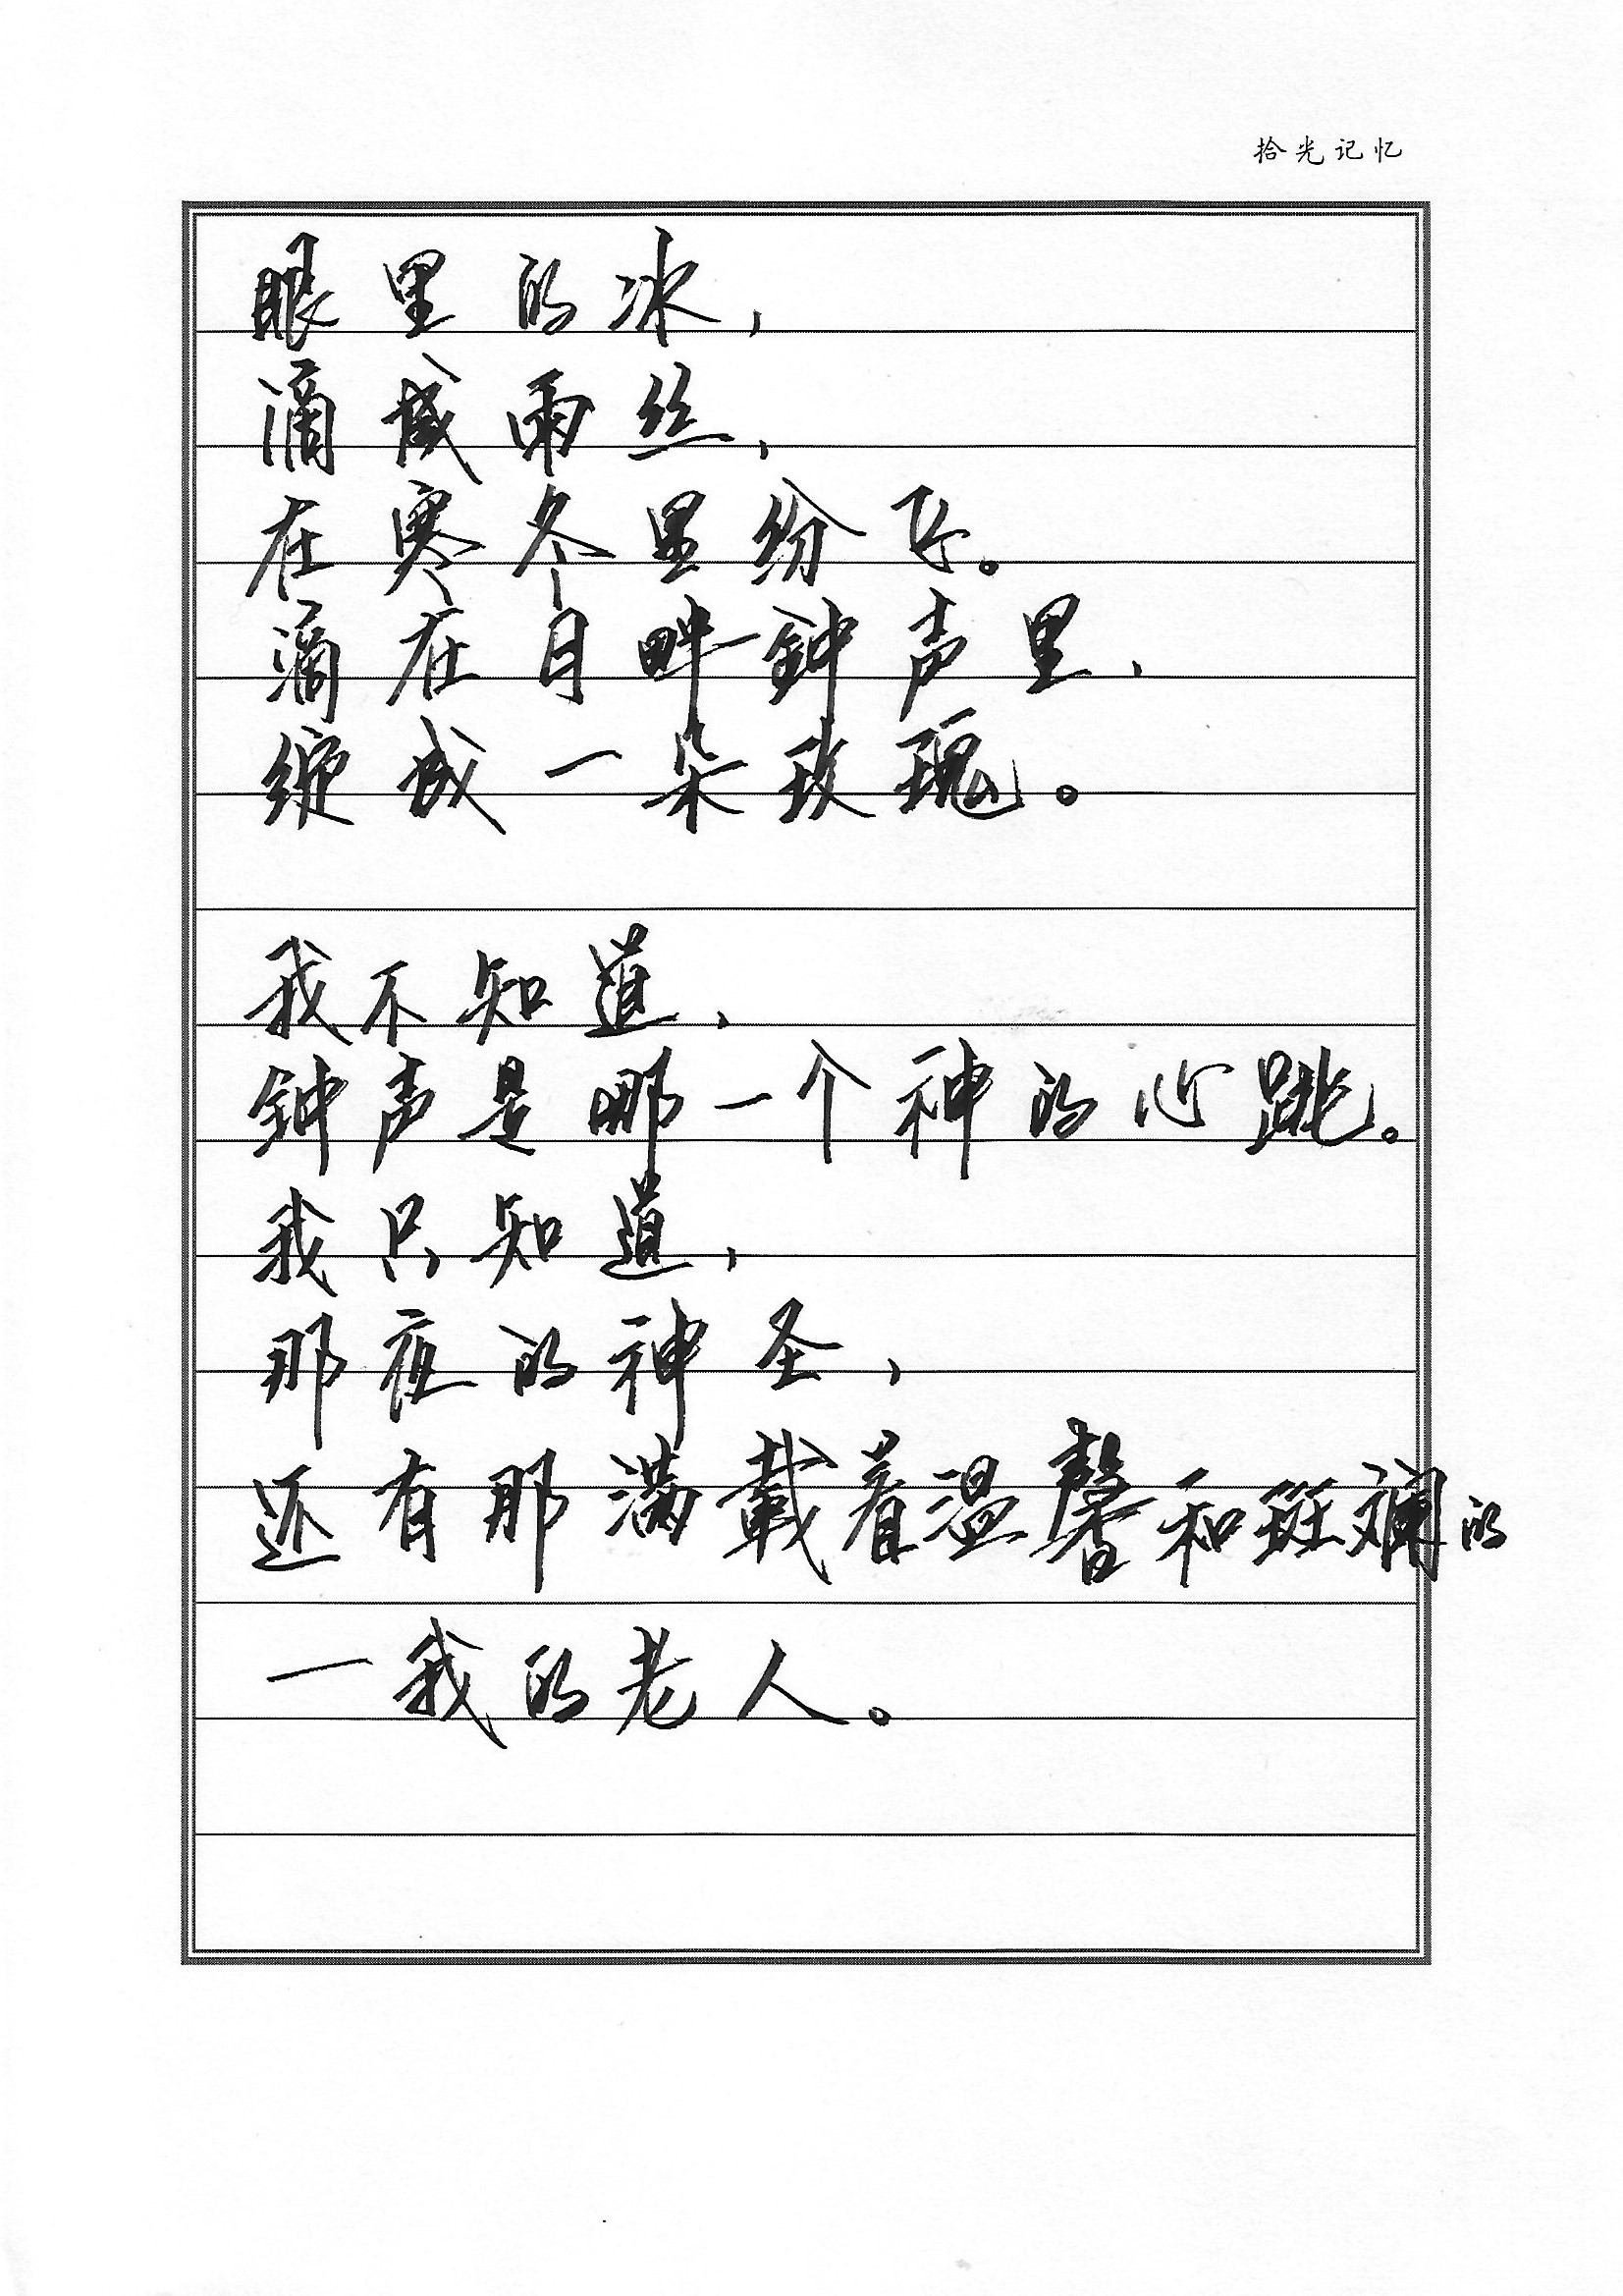 拾光记忆
眼里的冰，
滴成雨丝，
在寒冬里纷飞。
滴在月畔钟声里，
绽成一朵玫瑰。
我不知道，
钟声是哪一个神的心跳。
我只知道，
那夜的神圣，
还有那满载着温馨和斑斓的
一我的老人。